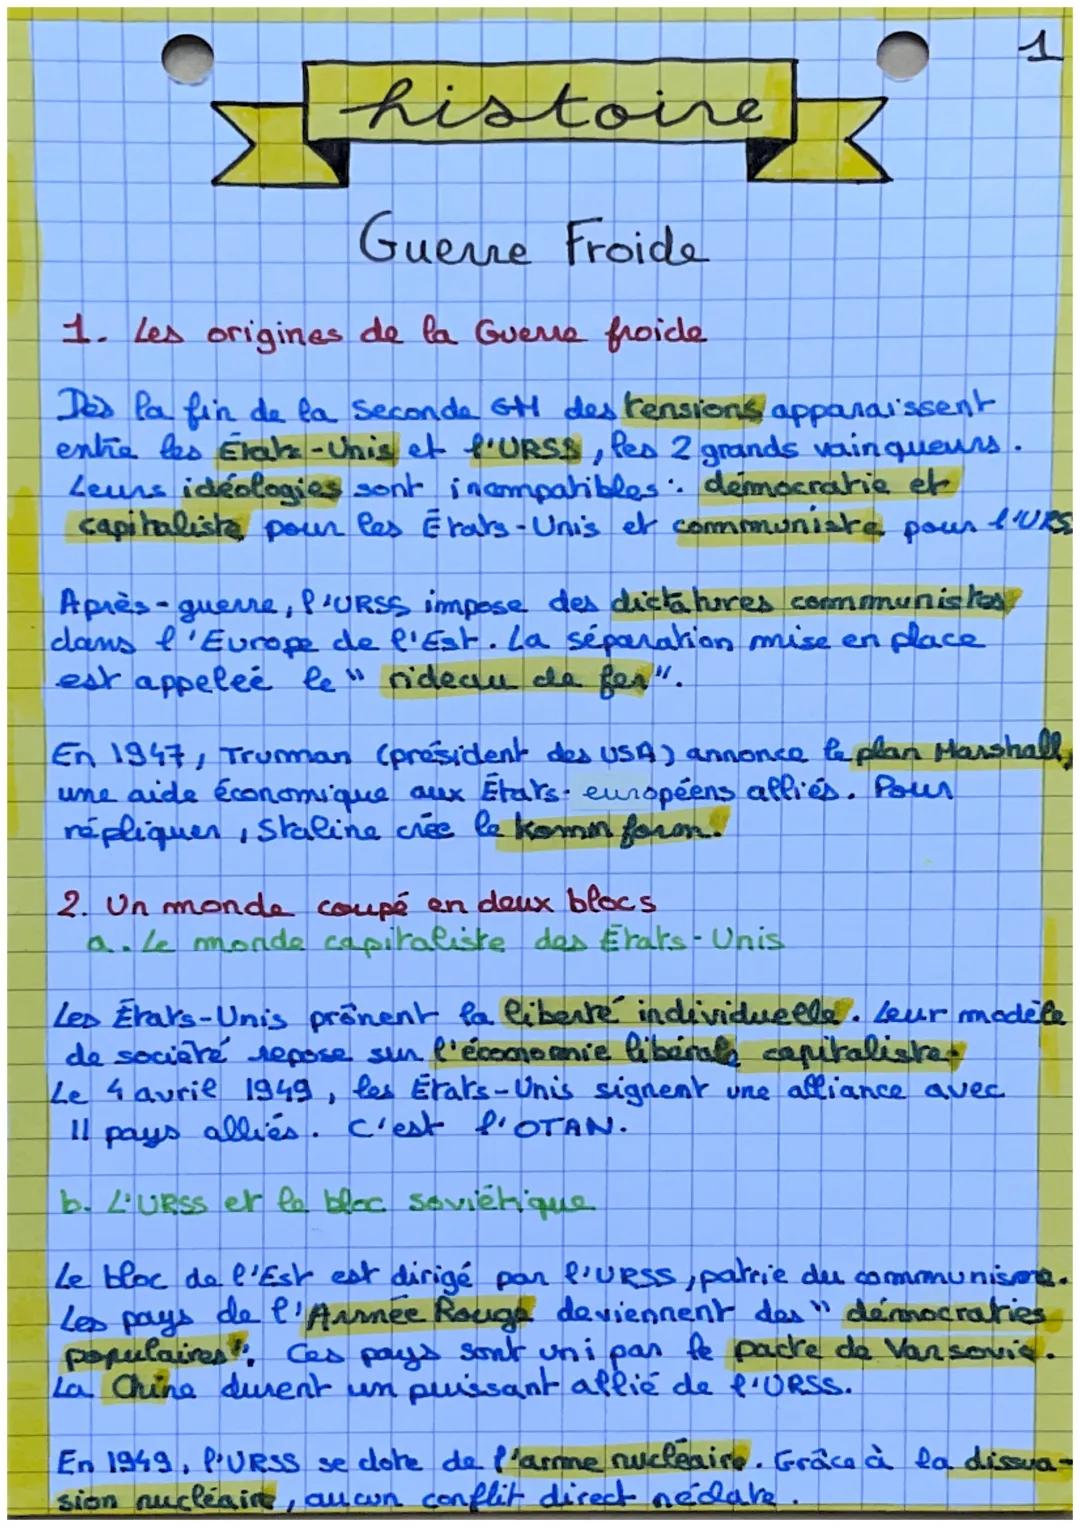 1
histoire
Guerre Froide
1. Les origines de la Guerre froide
Dès la fin de la Seconde GM des tensions apparaissent
entre les États-Unis et l'URSS, les 2 grands vainqueurs.
Leurs idéologies sont incompatibles : démocratie et
capitaliste pour les États-Unis et communiste pour l'URS
Après-guerre, l'URSS impose des dictatures communistes
dans l'Europe de l'Est. La séparation mise en place
est appeleé le "rideau de fer".
En 1947, Truman (président des USA) annonce le plan Marshall,
une aide économique aux États européens alliés. Pour
répliquer, Staline crée le Komin forom.
2. Un monde coupé en deux blocs
a. Le monde capitaliste des États-Unis
Les États-Unis prônent la liberté individuelle. Leur modèle
de société repose sur l'économie libérale capitaliste.
Le 4 avril 1949, les États-Unis signent une alliance avec
11 pays alliés. C'est l'OTAN.
b. L'URSS et le bloc soviétique
Le bloc de l'Est est dirigé par l'URSS, patrie du communisme.
Les pays de l'Armée Rouge deviennent des "démocraties
populaires". Ces pays sont uni par le pacte de Varsovie.
La Chine durent un puissant allié de l'URSS.
En 1949, l'URSS se dote de l'arme nucléaire. Grâce à la dissua-
sion nucléaire, aucun conflit direct n'éclate.